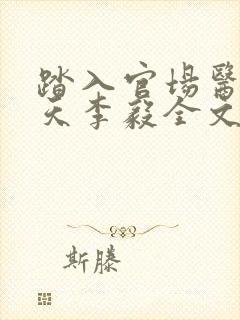 踏入官場醫
天李毅全文
斯滕